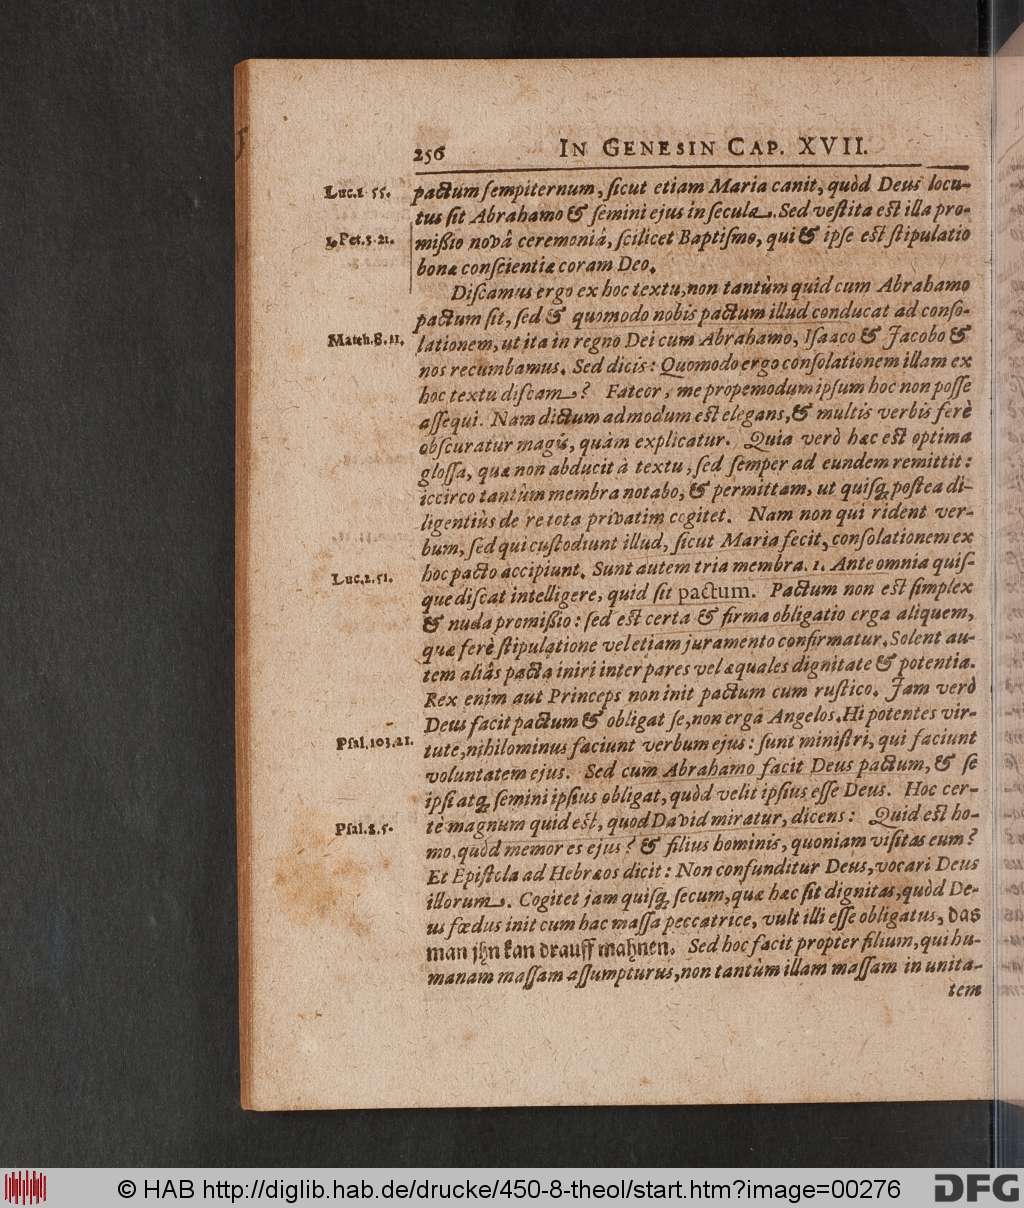 256 IN GENESIN CAP. XVII.
Luc.1 55. pactum sempiternum, sicut etiam Maria canit, quòd Deus locu-
tus sit Abrahamo & semini ejus in secula. Sed vestita est illa pro-
1. Pet.3.21. mißio novâ ceremoniâ, scilicet Baptismo, qui & ipse est stipulatio
bonæ conscientiæ coram Deo.
Discamus ergo ex hoc textu, non tantùm quid cum Abrahamo
pactum sit, sed & quomodo nobis pactum illud conducat ad conso-
Matth.8.11. lationem, ut ita in regno Dei cum Abrahamo, Isaaco & Jacobo &
nos recumbamus. Sed dicis: Quomodo ergo consolationem illam ex
hoc textu discam? Fateor, me propemodum ipsum hoc non posse
assequi. Nam dictum admodum est elegans, & multis verbis ferè
obscuratur magis, quàm explicatur. Quia verò hæc est optima
glossa, quæ non abducit à textu, sed semper ad eundem remittit:
iccirco tantùm membra notabo, & permittam, ut quisq; postea di-
ligentiùs de re tota privatim cogitet. Nam non qui rident ver-
bum, sed qui custodiunt illud, sicut Maria fecit, consolationem ex
Luc.2.51. hoc pacto accipiunt. Sunt autem tria membra. 1. Ante omnia quis-
que discat intelligere, quid sit pactum. Pactum non est simplex
& nuda promißio: sed est certa & firma obligatio erga aliquem,
quæ ferè stipulatione vel etiam juramento confirmatur. Solent au-
tem aliâs pacta iniri inter pares vel æquales dignitate & potentia.
Rex enim aut Princeps non init pactum cum rustico. Jam verò
Deus facit pactum & obligat se, non erga Angelos. Hi potentes vir-
Psal.103.21. tute, nihilominus faciunt verbum ejus: sunt ministri, qui faciunt
voluntatem ejus. Sed cum Abrahamo facit Deus pactum, & se
ipsi atq; semini ipsius obligat, quòd velit ipsius esse Deus. Hoc cer-
Psal.8.5. tè magnum quid est, quod David miratur, dicens: Quid est ho-
mo, quòd memor es ejus? & filius hominis, quoniam visitas eum?
Et Epistola ad Hebræos dicit: Non confunditur Deus, vocari Deus
illorum. Cogitet jam quisq; secum, quæ hæc sit dignitas, quòd De-
us fœdus init cum hac massa peccatrice, vult illi esse obligatus, das
man jhn kan drauff mahnen. Sed hoc facit propter filium, qui hu-
manam massam assumpturus, non tantùm illam massam in unita-
tem
© HAB http://diglib.hab.de/drucke/450-8-theol/start.htm?image=00276 DFG